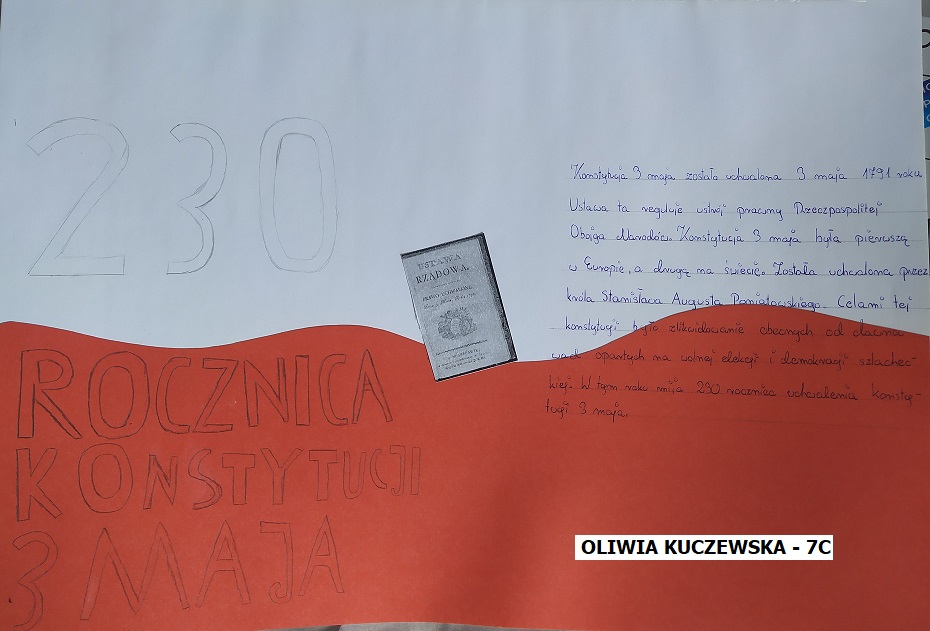 230
ROCZNICA
KONSTYTUCJI
3 MAJA
USTAWA
RZĄDOWA.
PRAWO UCHWALONE.
Konstytucja 3 maja została uchwalona 3 maja 1791 roku
Ustawa ta reguluje ustrój prawny Rzeczpospolitej
Obojga Narodów. Konstytucja 3 maja była pierwszą
w Europie, a drugą na świecie. Została uchwalona przez
króla Stanisława Augusta Poniatowskiego. Celami tej
konstytucji było zlikwidowanie obecnych od dawna
wad opartych na wolnej elekcji i demokracji szlachec-
kiej. W tym roku mija 230 rocznica uchwalenia konsty-
tucji 3 maja.
OLIWIA KUCZEWSKA - 7C